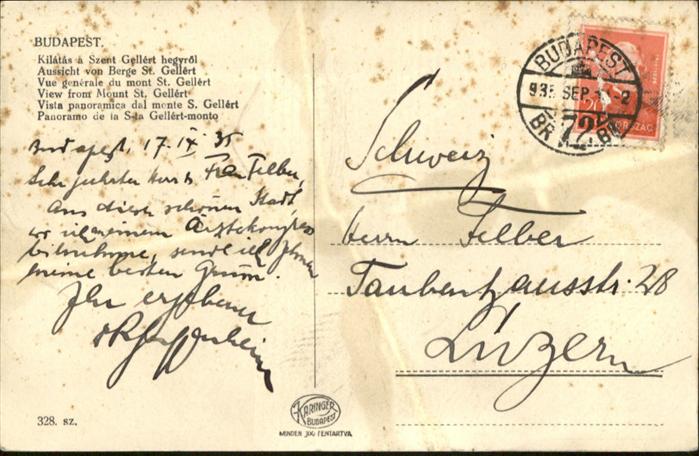 BUDAPEST.
Kilátás a Szent Gellért hegyről
Aussicht von Berge St. Gellért
Vue générale du mont St. Gellért
View from Mount St. Gellért
Vista panoramica dal monte S. Gellért
Panoramo de la S-ta Gellért-monto
Budapest, 17 IX 35
Sehr geehrter Herr u. Frau Felber,
Aus dieser schönen Stadt,
wo ich einem Ärztekongress
beiwohne, sende ich Ihnen
meine besten Grüsse.
Ihr ergebener
328. sz.
KARINGER
BUDAPEST
MINDEN JOG FENTARTVA
BUDAPEST
935 SEP
72
20
Schweiz
Herrn Felber
Taubenhausstr. 28
Luzern